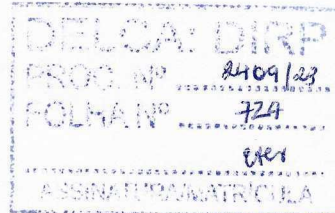 DELCA: DIRP
PROC. Nº 2409/23
FOLHA Nº 724
ASSINATURA/MATRÍCULA